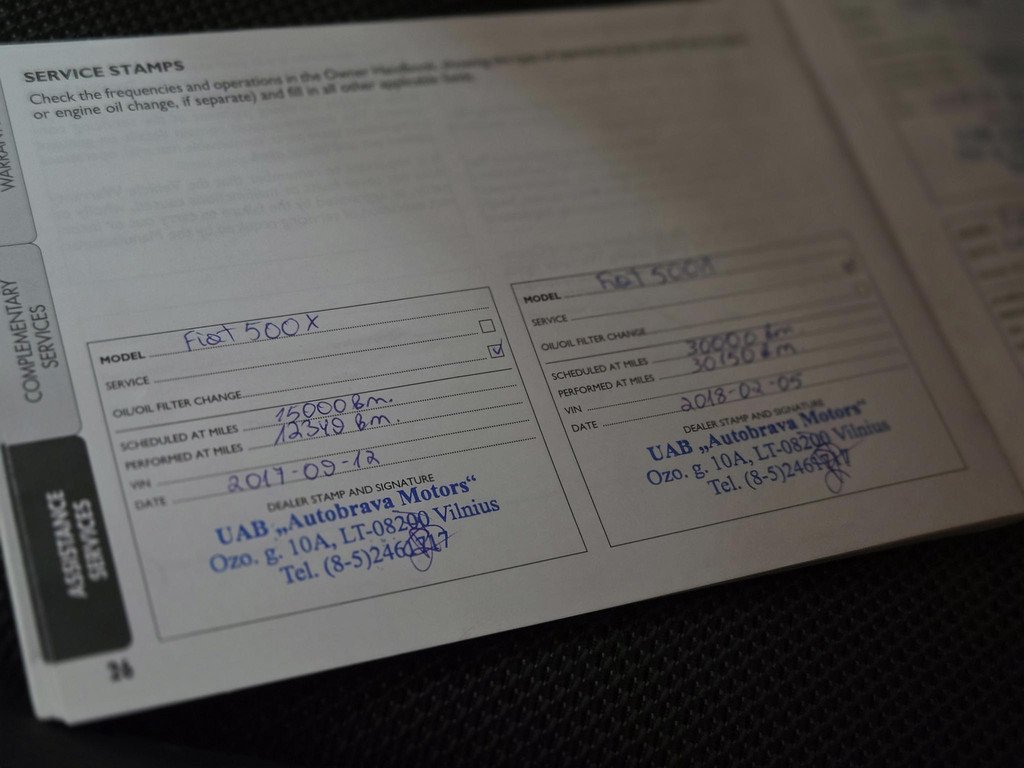 SERVICE STAMPS
Check the frequencies and operations in the Owner Handbook,
or engine oil change, if separate) and fill in all other applicable
WARRAN
COMPLEMENTARY
SERVICES
ASSISTANCE
SERVICES
MODEL Fiat 500X
SERVICE
OIL/OIL FILTER CHANGE
SCHEDULED AT MILES 15000 km.
PERFORMED AT MILES 12349 km.
VIN
DATE 2017-09-12
DEALER STAMP AND SIGNATURE
UAB „Autobrava Motors“
Ozo. g. 10A, LT-08200 Vilnius
Tel. (8-5)2461717
MODEL Fiat 500X
SERVICE
OIL/OIL FILTER CHANGE
SCHEDULED AT MILES 30000 km
PERFORMED AT MILES 30150 km
VIN
DATE 2018-02-05
DEALER STAMP AND SIGNATURE
UAB „Autobrava Motors“
Ozo. g. 10A, LT-08200 Vilnius
Tel. (8-5)2461717
26